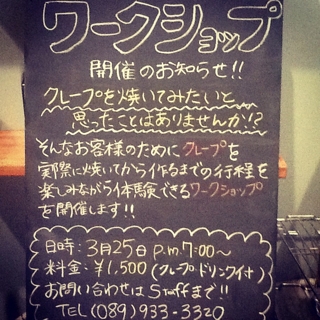 ワークショップ
開催のお知らせ!!
クレープを焼いてみたいと
思ったことはありませんか!?
そんなお客様のためにクレープを
実際に焼いてから作るまでの行程を
楽しみながら体験できるワークショップ
を開催します!!
日時:3月25日 p.m.7:00〜
料金:¥1,500(クレープ・ドリンク付)
お問い合わせはStaffまで!!
TEL (089)933-3320